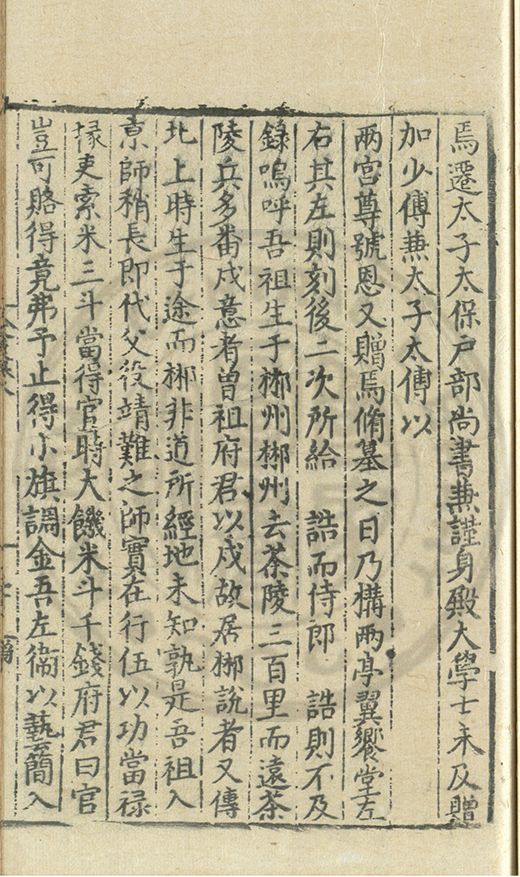 焉遷太子太保戶部尚書兼謹身殿大學士未及贈
加少傅兼太子太傅以
兩宮尊號恩又贈焉脩墓之日乃構兩亭翼饗堂左
右其左則刻後二次所給　誥而侍郎　誥則不及
錄嗚呼吾祖生于郴州郴州去茶陵三百里而遠茶
陵兵多番戍意者曾祖府君以戍故居郴說者又傳
北上時生于途而郴非道所經地未知孰是吾祖入
京師稍長即代父役靖難之師實在行伍以功當祿
掾吏索米三斗當得官時大饑米斗千錢府君曰官
豈可賂得竟弗予止得小旗調金吾左衞以藝簡入